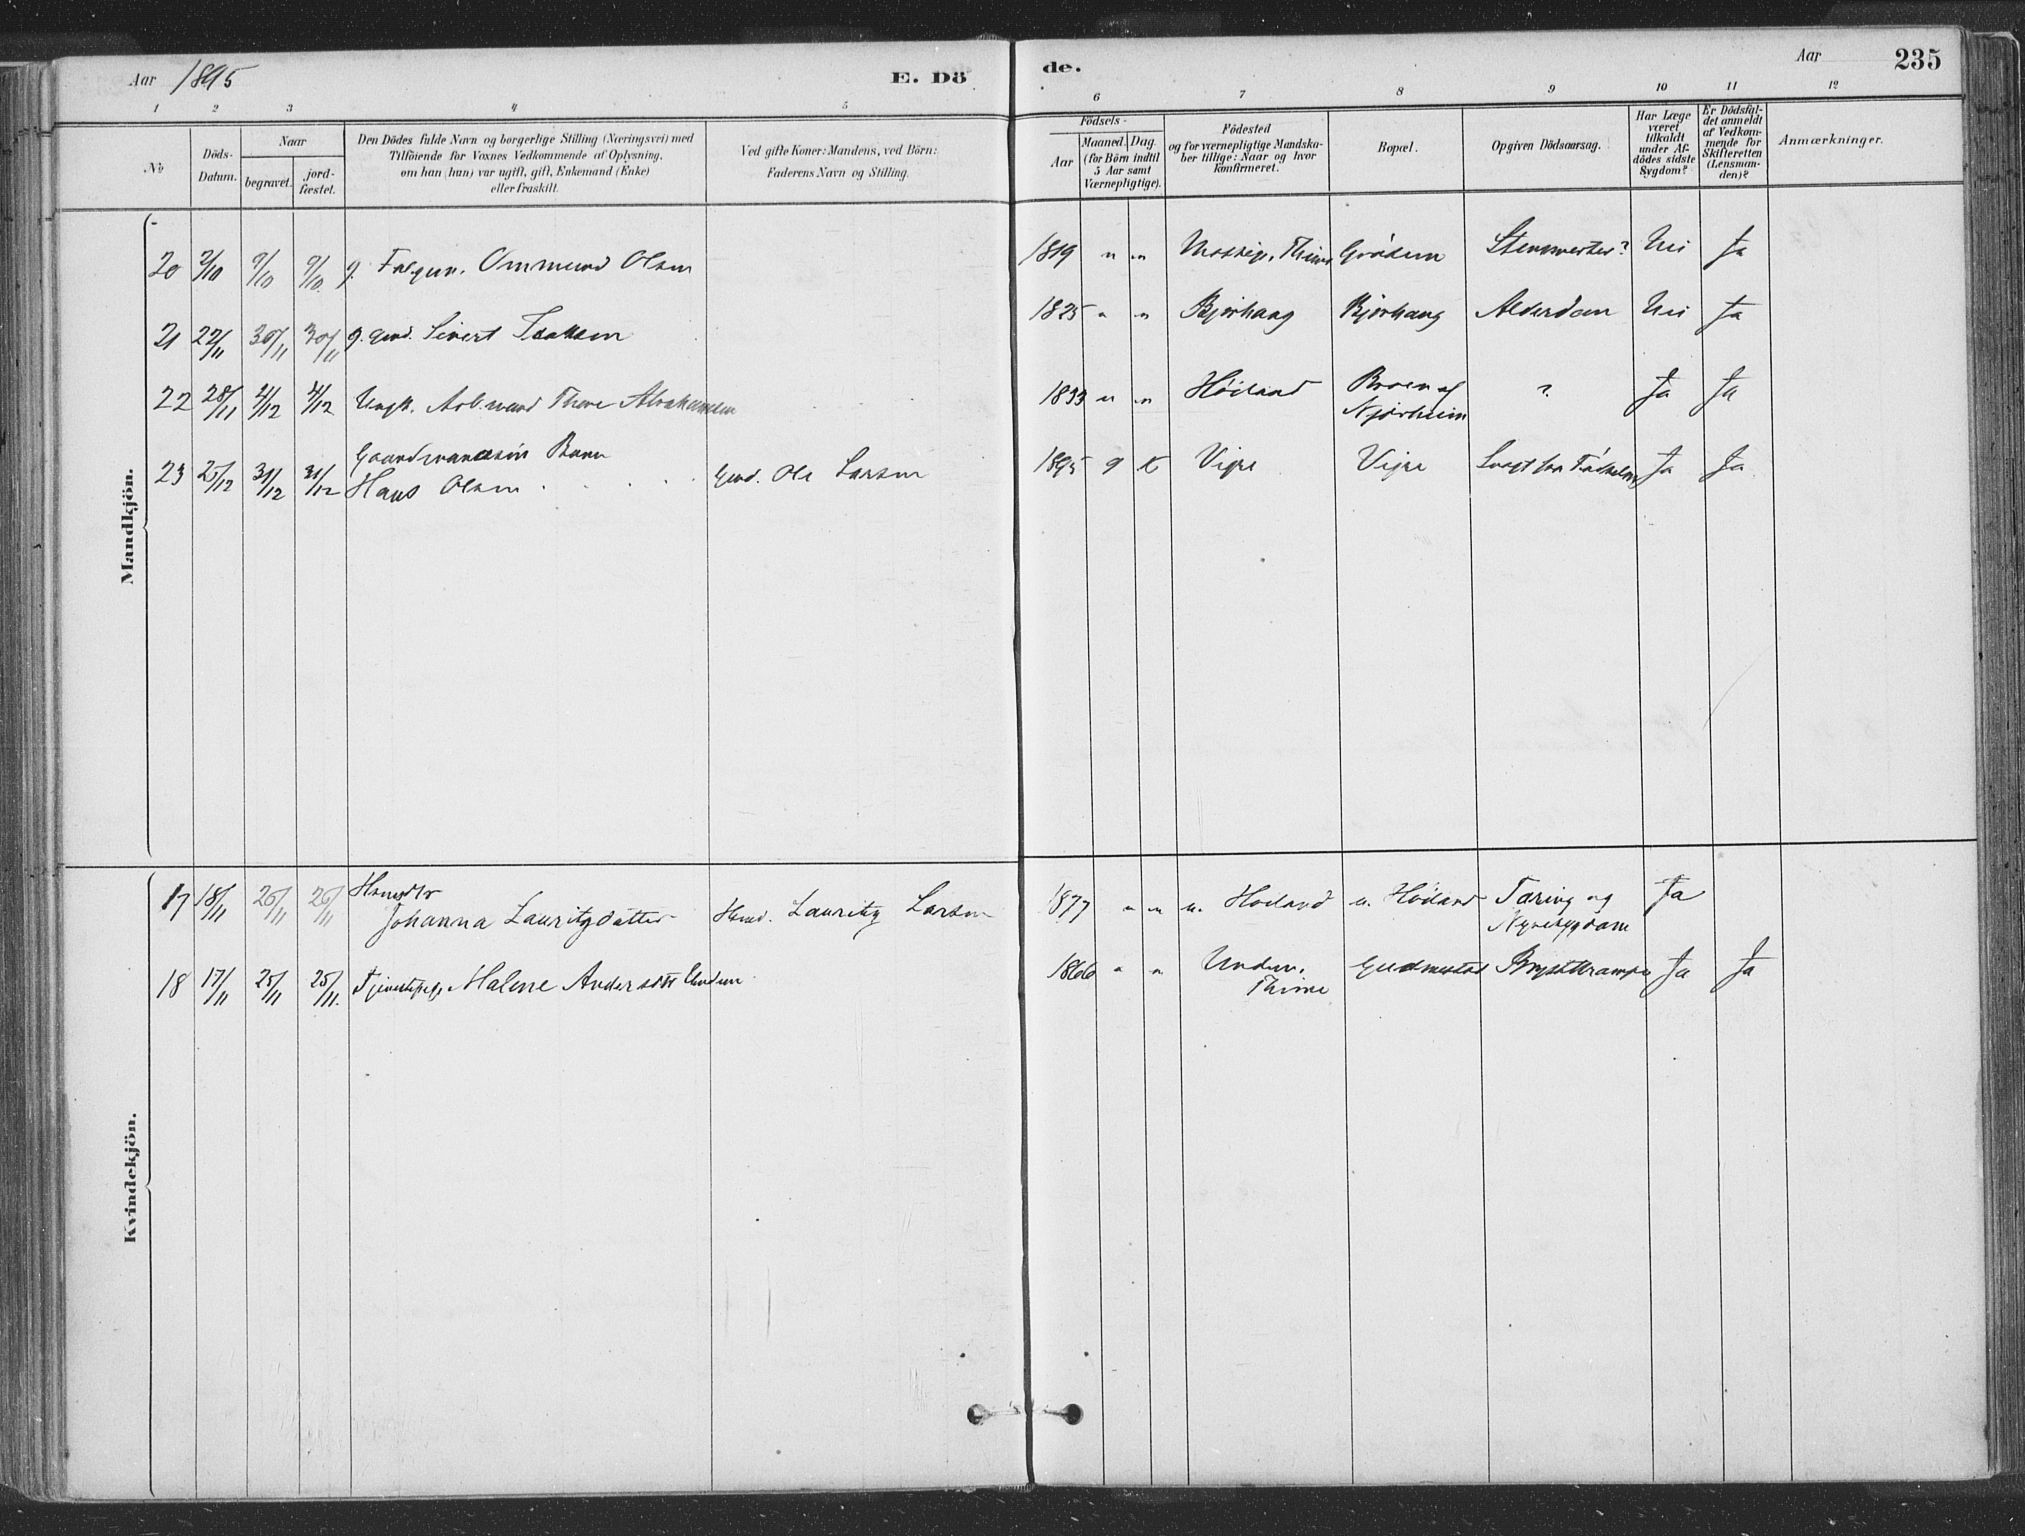 Aar 1895
E. Dö
de.
Aar
235
1 2 3 4 5 6 7 8 9 10 11 12
No
Döds-Datum.
Naar
begravet.
jord-fæstet.
Den Dödes fulde Navn og borgerlige Stilling (Næringsvei) med
Tilföiende for Voxnes Vedkommende af Oplysning,
om han (hun) var ugift, gift, Enkemand (Enke)
eller fraskilt.
Ved gifte Koner: Mandens, ved Börn:
Faderens Navn og Stilling.
Födsels-
Aar
Maaned. Dag.
(for Börn indtil
5 Aar samt
Værnepligtige).
Födested
og for værnepligtige Mandska-
ber tillige: Naar og hvor
konfirmeret.
Bopæl.
Opgiven Dödsaarsag.
Har Læge
været
tilkaldt
under Af-
dödes sidste
Sygdom?
Er Dödsfal-
det anmeldt
af Vedkom-
mende for
Skifteretten
(Lensman-
den)?
Anmærkninger.
Mandkjön.
20 2/10 9/10 9/10 g. Ommund Olsen 1819 " " Grödem Nei Ja
21 22/11 30/11 30/11 g. Gmd. Sivert Isaksen 1825 " " Bjørhaug Bjørhaug Alderdom Nei Ja
22 28/11 4/12 4/12 Ungk. Arb.mand Thore Abrahamsen 1833 " " Höiland Broen af ? Ja Ja
Njærheim
Gaardmandssön Barn
23 25/12 31/12 31/12 Hans Olsen Gmd. Ole Larsen 1895 9 Vigre Vigre Svagt fra Födselen Ja Ja
Kvindekjön.
17 18/11 26/11 26/11 Johanna Lauritzdatter Hmd. Lauritz Larsen 1877 " " n. Höiland n. Höiland Tæring og Ja
Nyresygdom
18 17/11 25/11 25/11 Tjenestepige Malene Andersdtr Undem 1866 " " Undem, Gudmestad Brystkrampe Ja Ja
Thime